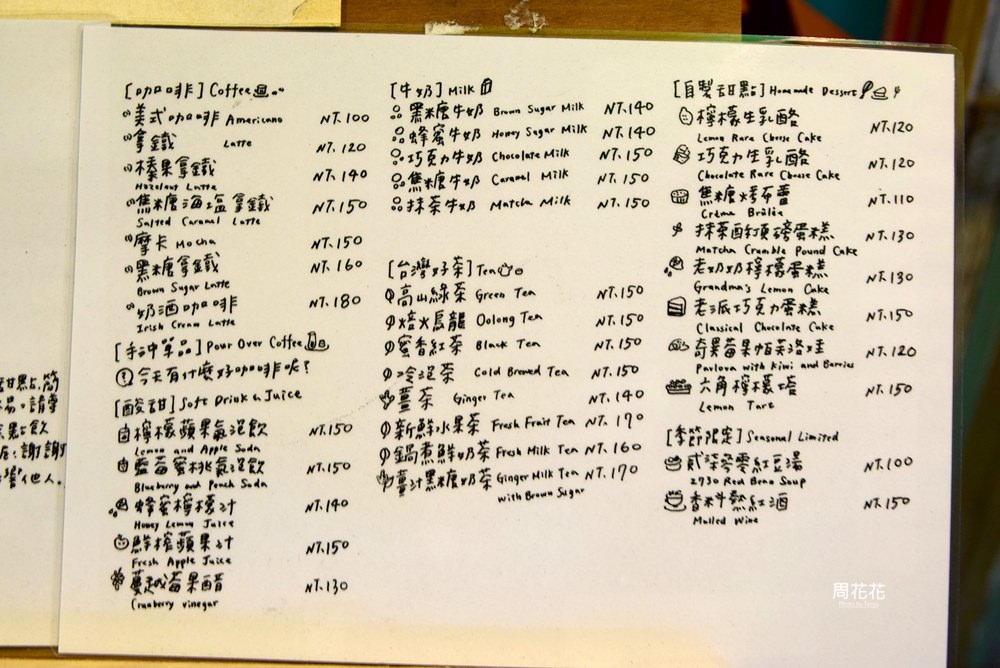 [咖啡] Coffee
美式咖啡 Americano NT.100
拿鐵 Latte NT.120
榛果拿鐵 NT.140
Hazelnut Latte
焦糖海塩拿鐵 NT.150
Salted Caramel Latte
摩卡 Mocha NT.150
黑糖拿鐵 NT.160
Brown Sugar Latte
奶酒咖啡 NT.180
Irish Cream Latte
[手沖單品] Pour Over Coffee
今天有什麼好咖啡呢?
[酸甜] Soft Drink & Juice
檸檬蘋果氣泡飲 NT.150
Lemon and Apple Soda
藍莓蜜桃氣泡飲 NT.150
Blueberry and Peach Soda
蜂蜜檸檬汁 NT.140
Honey Lemon Juice
鮮榨蘋果汁 NT.150
Fresh Apple Juice
蔓越莓果醋 NT.130
Cranberry vinegar
[牛奶] Milk
黑糖牛奶 Brown Sugar Milk NT.140
蜂蜜牛奶 Honey Sugar Milk NT.140
巧克力牛奶 Chocolate Milk NT.150
焦糖牛奶 Caramel Milk NT.150
抹茶牛奶 Matcha Milk NT.150
[台灣好茶] Tea
高山綠茶 Green Tea NT.150
焙火烏龍 Oolong Tea NT.150
蜜香紅茶 Black Tea NT.150
冷泡茶 Cold Brewed Tea NT.150
薑茶 Ginger Tea NT.140
新鮮水果茶 Fresh Fruit Tea NT.170
鍋煮鮮奶茶 Fresh Milk Tea NT.160
薑汁黑糖奶茶 Ginger Milk Tea NT.170
with Brown Sugar
[自製甜點] Homemade Dessert
檸檬生乳酪 NT.120
Lemon Rare Cheese Cake
巧克力生乳酪 NT.120
Chocolate Rare Cheese Cake
焦糖烤布蕾 NT.110
Crème Brûlée
抹茶酥頂磅蛋糕 NT.130
Matcha Crumble Pound Cake
老奶奶檸檬蛋糕 NT.130
Grandma's Lemon Cake
老派巧克力蛋糕 NT.150
Classical Chocolate Cake
奇異莓果帕芙洛娃 NT.120
Pavlova with Kiwi and Berries
六角檸檬塔 NT.150
Lemon Tart
[季節限定] Seasonal Limited
貳柒參零紅豆湯 NT.100
2730 Red Bean Soup
香料熱紅酒 NT.150
Mulled Wine
周花花